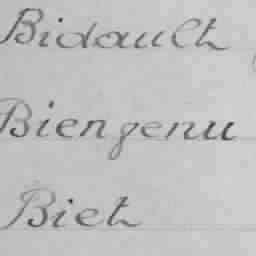 Bidault
Biengenu
Biet